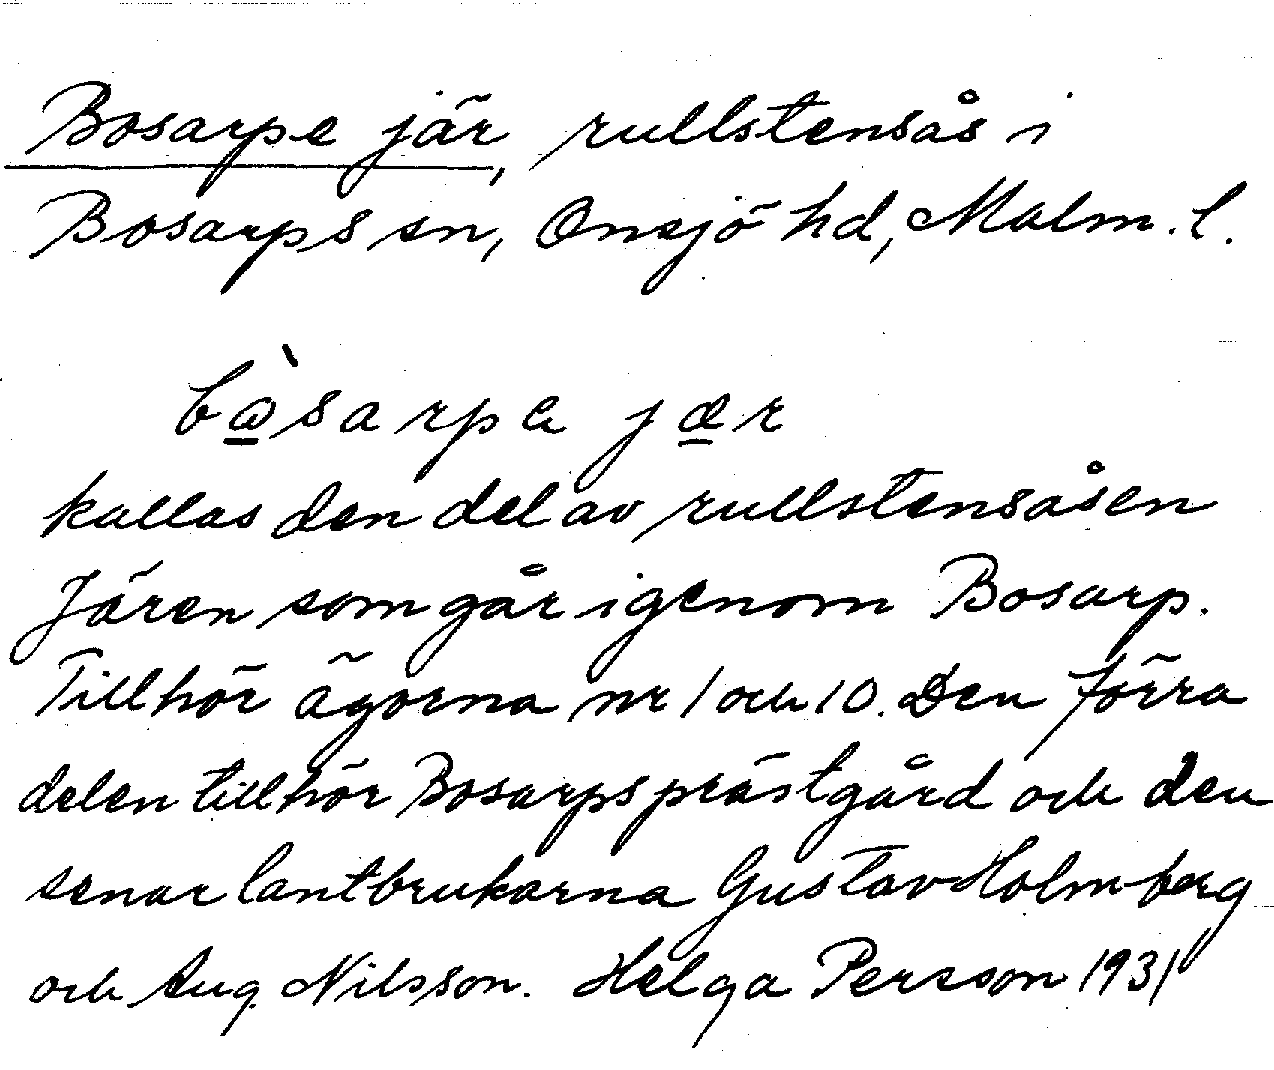 Bosarps jär, rullstensås i
Bosarps sn, Onsjö hd, Malm. l.
kallas den del av rullstensåsen
Jären som går igenom Bosarp.
Tillhör ägorna nr 1 och 10. Den förra
delen tillhör Bosarps prästgård och den
senar lantbrukarna Gustav Holmberg
och Aug. Nilsson. Helga Persson 1931